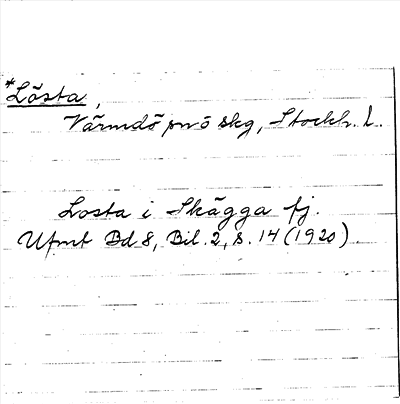 *Lösta,
Värmdö sn ö skg, Stockh. L.
Losta i Skägga fj.
Ufmt Bd 8, Bil. 2, s. 14 (1920).